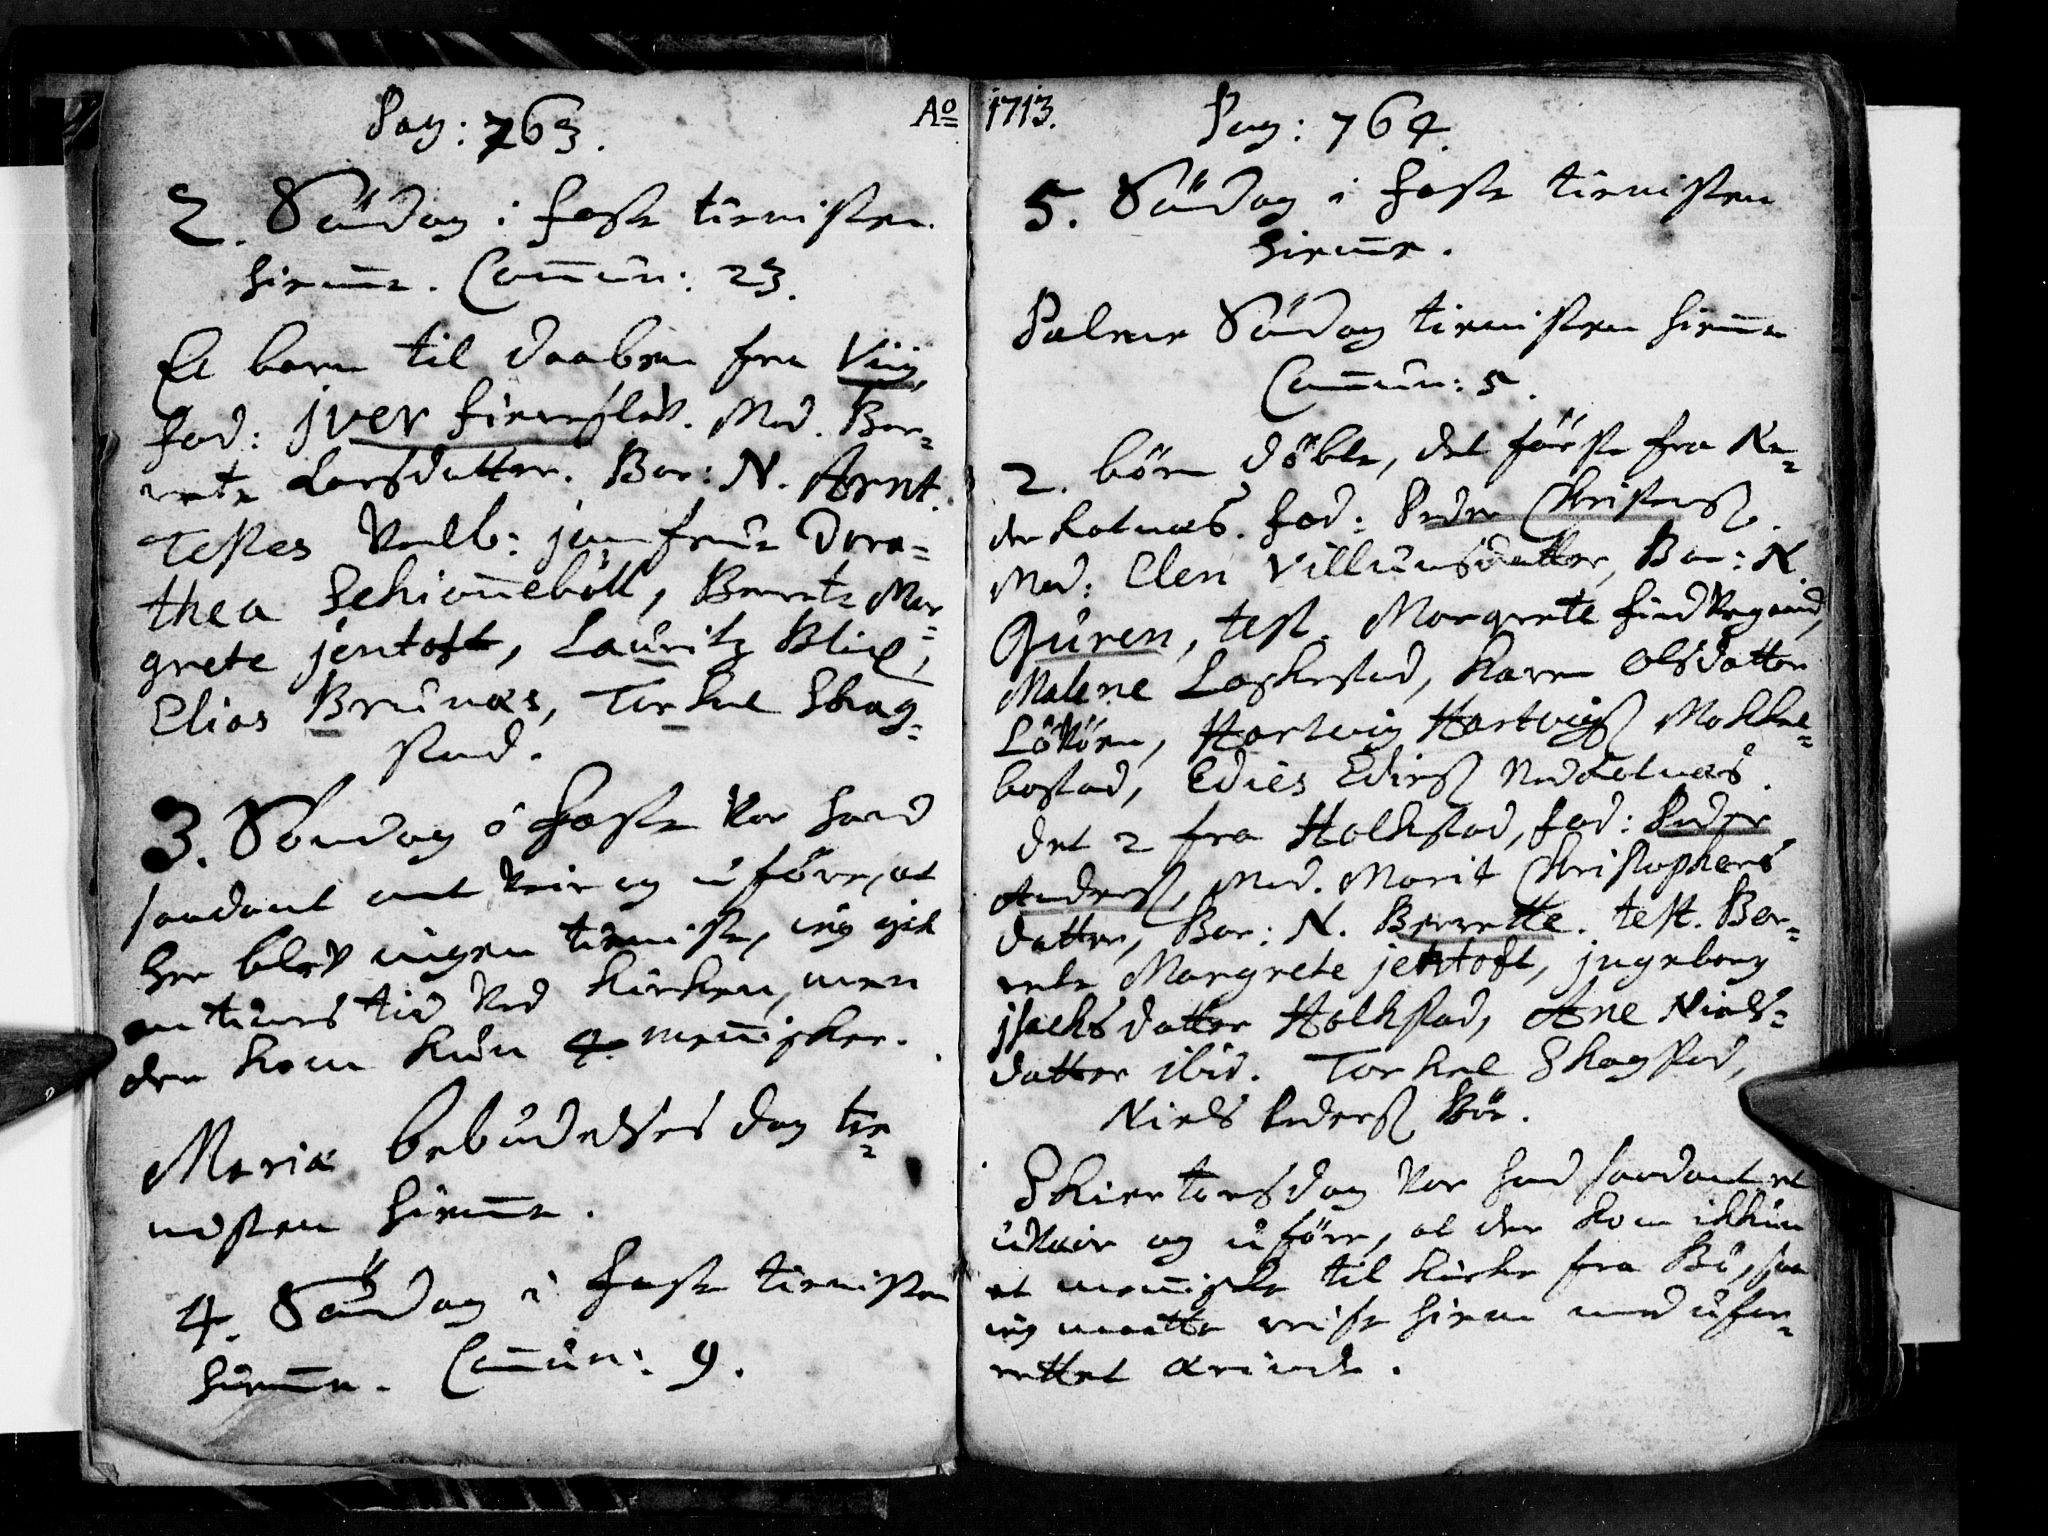 Pag: 763. Ao
2. Söndag i faste tienisten
hiem̅e. Com̅un: 23.
Et barn til daaben fra Viig,
fad: jver hierreslev. Mod. Ber=
rete Larsdatter. Bar: N. Arnt.
Testes Velb: jomfrue Doro=
thea Schiønebøll, Berrete Mar=
grete jentoft, Lauritz Blix,
Elias Brunæs, Torkel Skag=
stad.
3. Søndag i faste var haard
saadant ont veir og uføre, at
her blev ingen tieniste, ieg gik
en tiimes tid ved Kirken, men
der kom kun 4 men̅isker.
Mariæ bebudelses dag tie=
nisten hiem̅e.
4. Söndag i faste tienisten
hiem̅e. Com̅un: 9.
1713. Pag: 764.
5. Söndag i faste tienisten
hiem̅e.
Palme Söndag tienisten hiem̅e
Com̅un: 5.
2. börn döbte, det förste fra Ne=
der Kolnæs. fad: Peder Christenß.
Mod: Elen Villumsdatter, Bar: N.
Guren, test. Margrete
Malene Laskestad, Karen Olsdatter
Løvøen, Hartvig Hartvigß Mokkel=
bostad, Edies Edisß Ned Kolnæs.
det 2 fra Holkstad, fad: Peder
Anderß, Mod. Marit Christophers
datter, Bar: N. Berrette. test. Ber=
rete Margrete jentoft, jngeborg
jsachsdatter Holkstad, Ane Niels=
datter ibid. Torkel Skagstad,
Niels Pederß Bøe.
Skiertorsdag var saadant et
uveir og uføre, at der kom ikkun
et men̅iske til Kirke fra Bö, saa
ieg maatte reise hiem med ufor=
rettet ærinde.